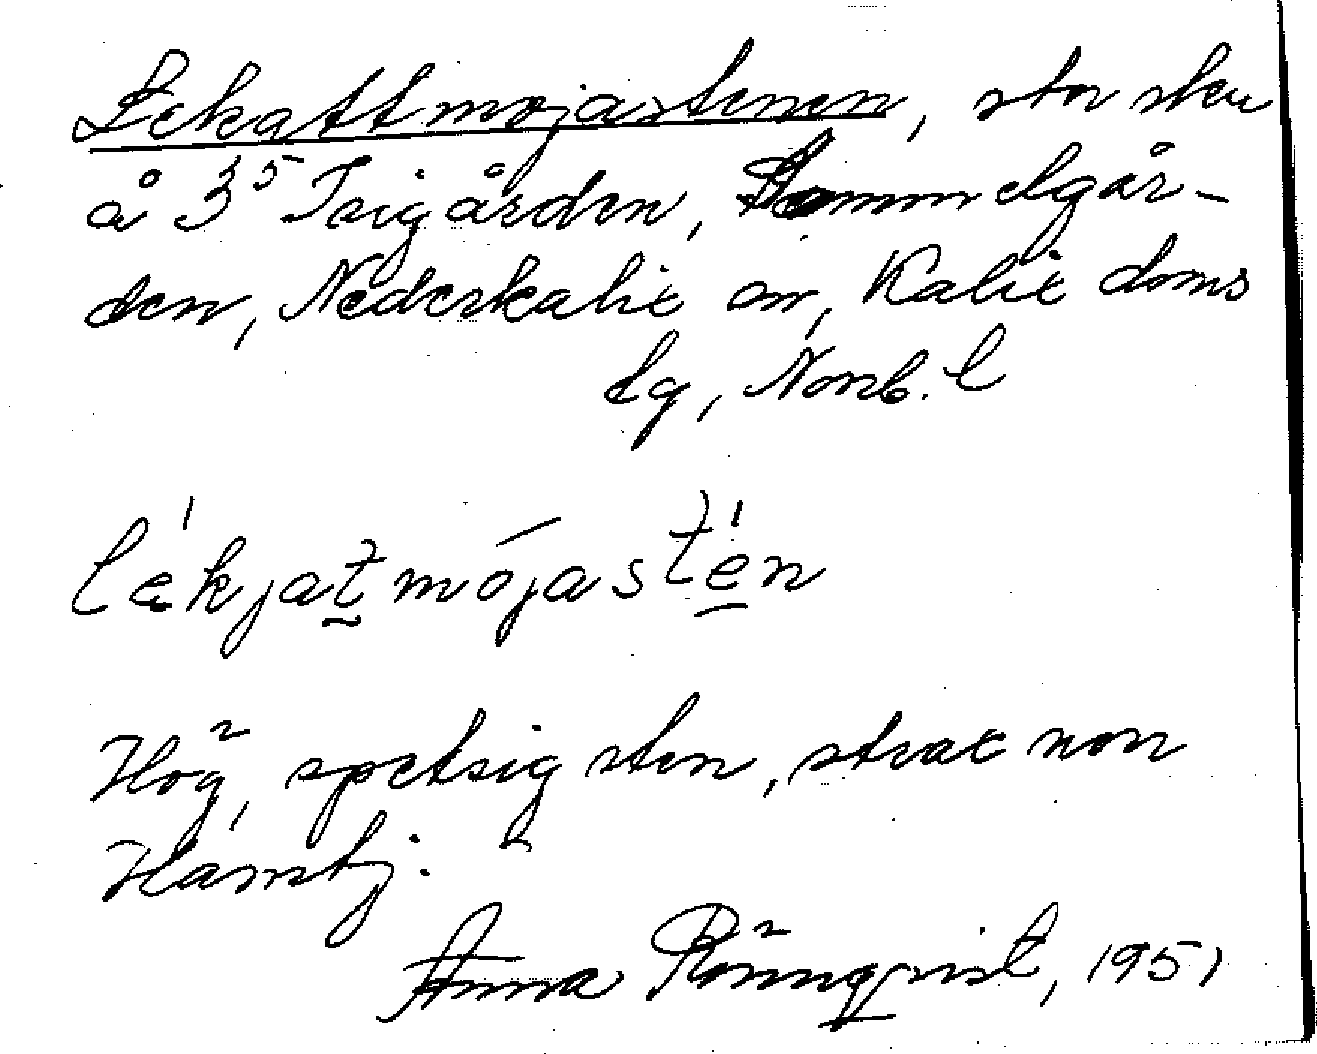 Lekattmojastenen, stor sten
å 3⁵ Isigården, Gammelgår-
den, Nederkalix sn, Kalix doms
lg, Norrb. l
lékjatmójastén
Hög, spetsig sten, strax norr
Hámtj.
Anna Rönnqvist, 1951